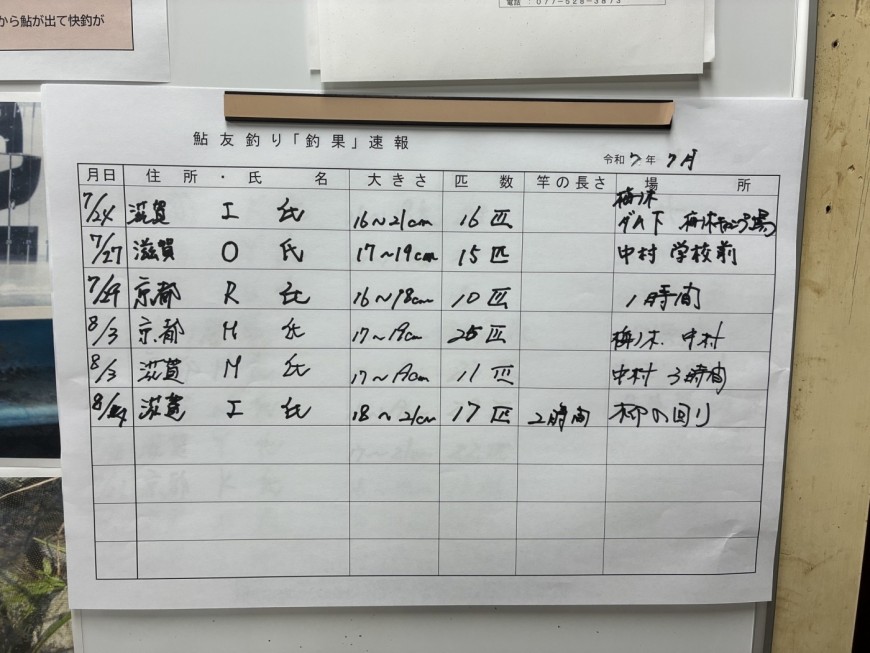 から鮎が出て快釣が
電話:077-528-3873
鮎友釣り「釣果」速報
令和7年 7月
月日 住所・氏名 大きさ 匹数 竿の長さ 場所
7/24 滋賀 I 氏 16～21cm 16匹 梅ノ木 ダム下 梅ノ木キャンプ場
7/27 滋賀 O 氏 17～19cm 15匹 中村 学校前
7/29 京都 R 氏 16～18cm 10匹 1時間
8/3 京都 M 氏 17～19cm 25匹 梅ノ木. 中村
8/3 滋賀 M 氏 17～19cm 11匹 中村 3時間
滋賀 I 氏 18～21cm 17匹 2時間 柳の回り